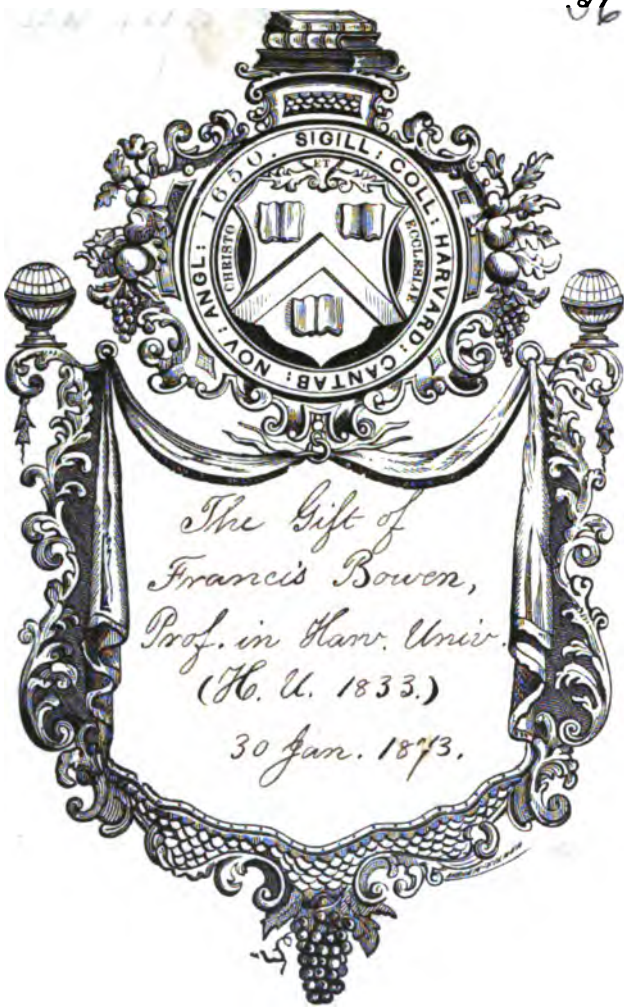 SIGILL : COLL : HARVARD : CANTAB : NOV : ANGL : 1650.
CHRISTO
ET
ECCLESIAE
The Gift of
Francis Bowen,
Prof. in Harv. Univ.
(H. U. 1833.)
30 Jan. 1873.